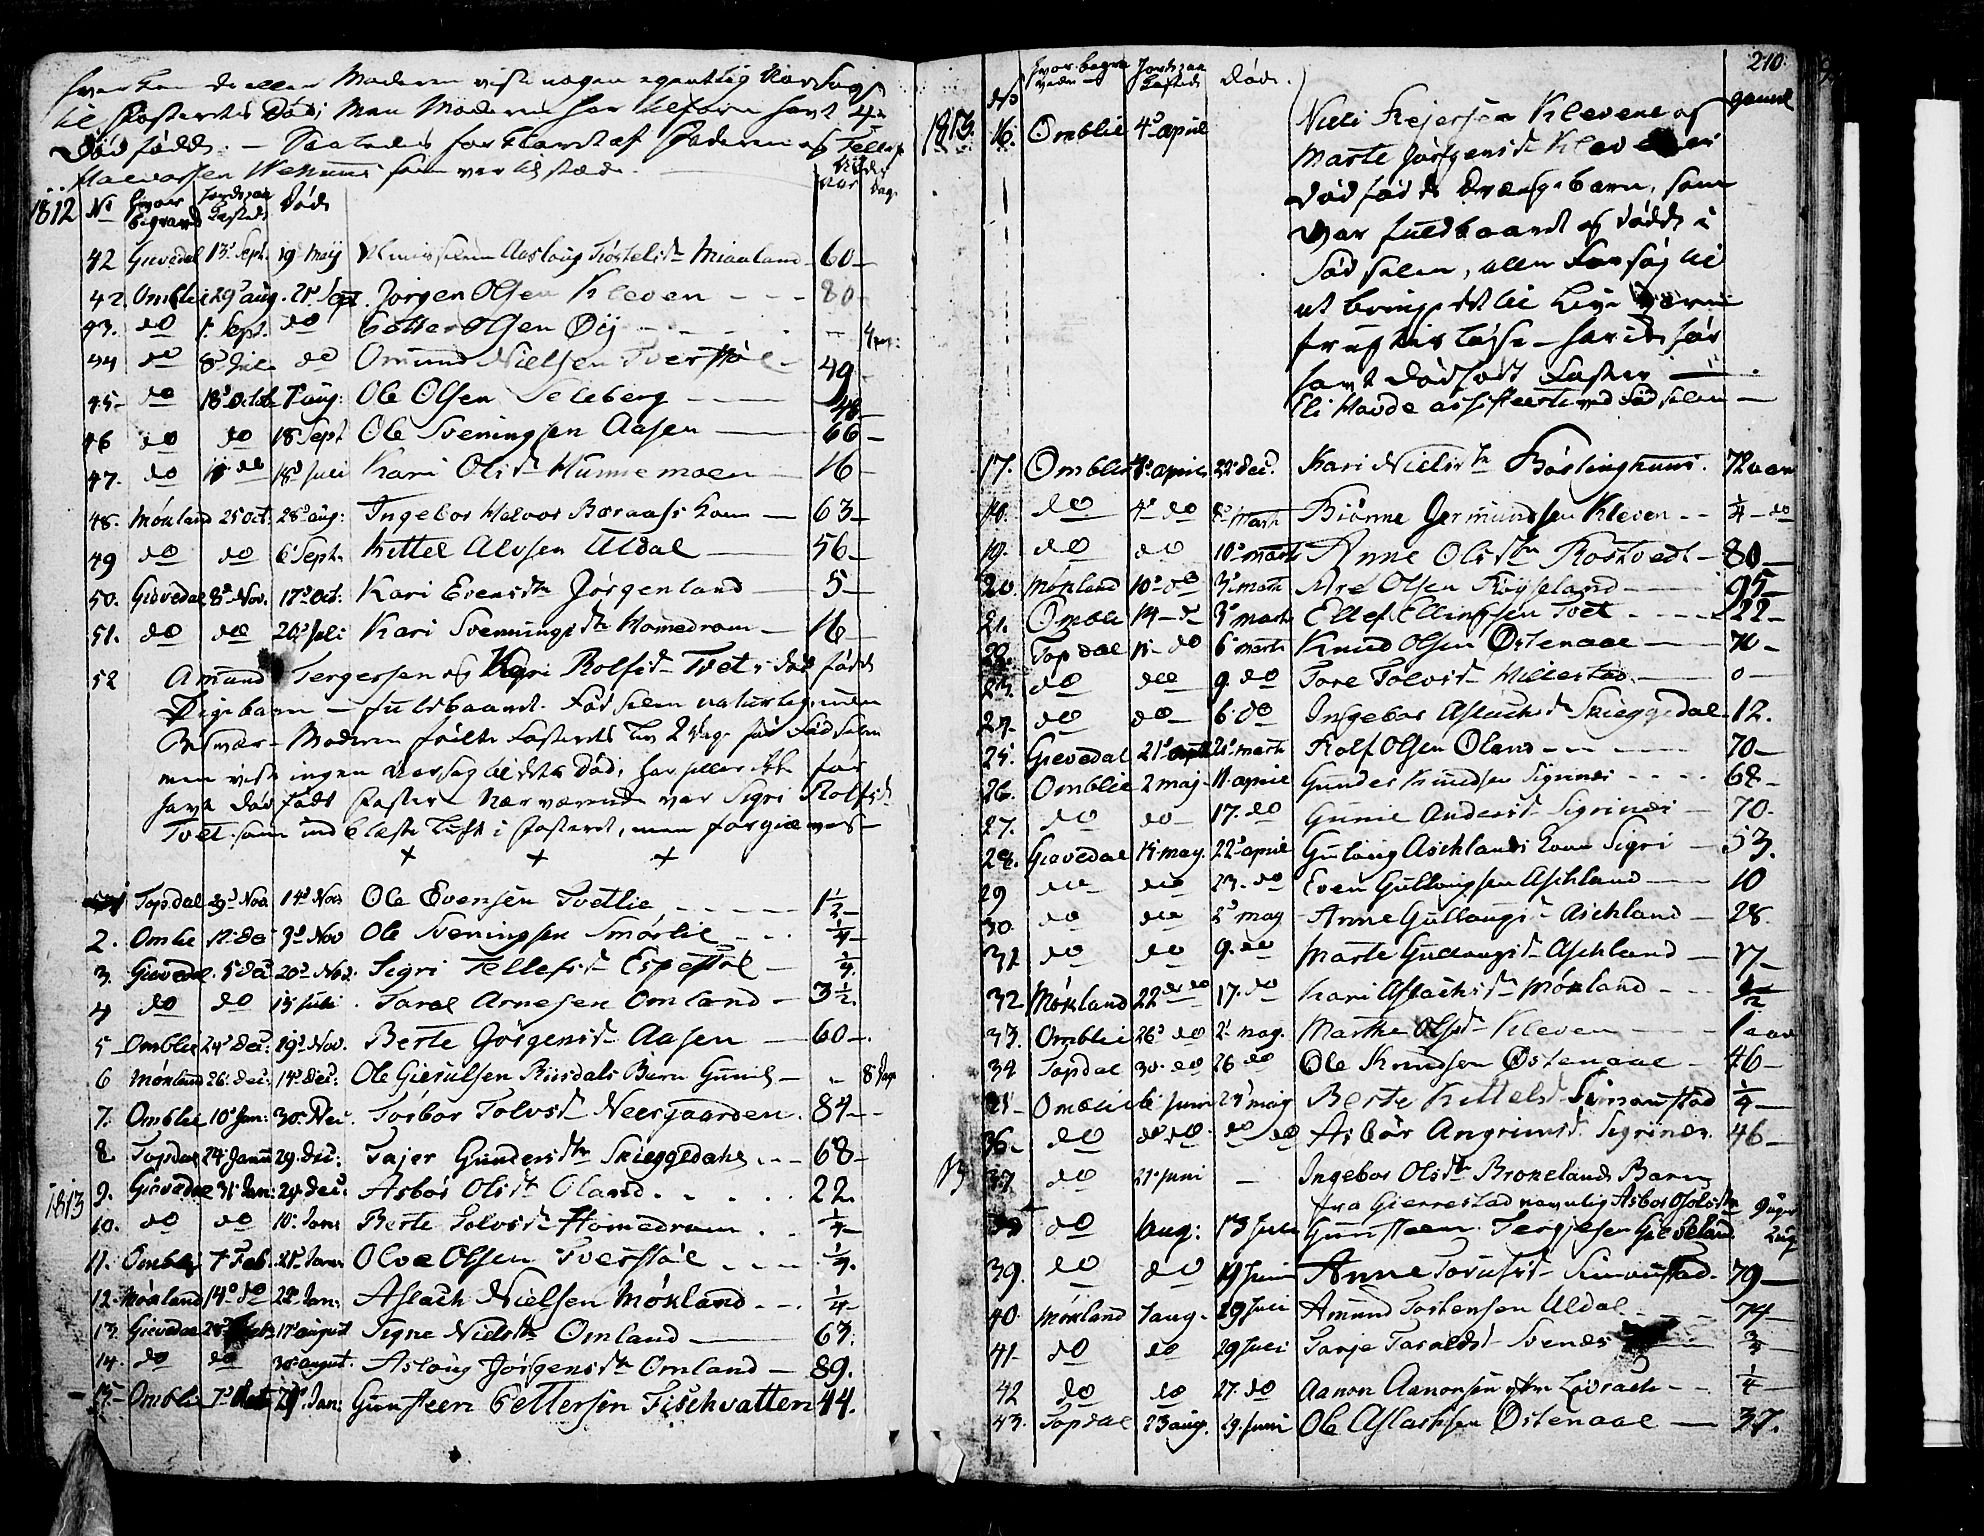 hverken de eller Moderen viste nogen egentlig Aarsag
til Fosterets Død; men Moderen har tilforn havt 4
Dødfødde. —
1812 No hvor begravd Jordspaakastede Død Aar Dage
42 Gievedal 13 Sept. 19 Maij Aaslaug Miaaland 60
42 Omblie 29 aug. 21 Sept. Jørgen Olsen Kleven 80
43. do 1. Sept. do Olsen Øij 4
44 do 8 do Omund Nielsen Tverstøl 49
45 do 18 Octob 7 aug: Ole Olsen Seleberg 48
46 do do 18 Sept Ole Sveningsen Aasen 66
47. do do 18 Juli Kari Olsd. Hunnemoen 16
48. Mökland 25 oct: 28 aug: Ingebor Halvor kone 63
49 do do 6 Sept. Kittel Alvsen Uldal 56
50. Gievedal 8 Nov. 17 Oct: Kari Evensdr Jørgenland 5
51. do do 20 Juli Kari Svenningsdr Homedrom 16
52 Amund Tergersen og Kari Rolfsd. Tvet dødfødde
Pigebarn — fuldbaaret. Fødselen naturlig, men
Moderen følte Fosteret 2 Dage før Fødselen
men viste ingen Aarsag til dets Død, har heller ikke før
havt dødfødt Foster. Nærværende var Sigri Rolfsd.
Tvet som indblæste luft i fosteret, men forgiæves —
+ + +
Topdal 29 Nov 14 Nov Ole Evensen Tvetlie 1 1/2
2. Omlie 12 De 9 Nov Ole Sveningsen Smørlie 1/4
3. Gievedal 5 Dec 20 Nov. Sigri Tellefsd. Espestøl 1/4
4 do do 15 Juli Taral Arnesen Omland 3 1/2
5 Omblie 24 Dec: 19 Nov. Berte Gørgensd. Aasen 60
6 Mökland 26. Dec: 14 Dec: Ole Gierulsen Riisdals Barn Gunild 8 Dage
7. Omblie 10 Jan: 30 Dec: Torbor Tolvsd. Neergaarden 84
8. Topdal 24 Janu 29. Dec: Tajer Gundersdr Skieggedahl 68
1813 9. Gievedal 31 Jan: 24 Dec. Asbør Olsdr Oland 22
10. do do 10 Jan: Berte Tolvsd. Homedrom 1/4
11. Omblie 7 Feb. 21 Janu Olve Olsen Tverstøl 1/4
12. Mökland 14 do 22 Jan: Aslach Nielsen Mökland 1/4
13. Gievedal 28 17 august Signe Nielsdr Omland 63
14. do do 30 august. Aslaug Jørgensdr Omland 89.
15 Omblie 7 29 Jan: Gunsteen Pettersen Fischvatten 44.
210.
No hvor begravede Jordspaakastede Død gammel
1813. 16. Omblie 4 april Niels Klevene og
Marte Jørgensd. Klevene
dødfødde Drængebarn, som
var fuldbaaret og dødde i
Fødselen, allen Forsøg til
at bringe det til Live vare
frugtesløse — har ikke før
havt dødfødt Foster —
Eli Havde assisteerte ved Fødselen —
17. Omblie april 22 Dec. Kari Nielsdr 72 aar
18. do 4 do 8 Marti Biønne Germundsen Kleven 1/4 do
19. do do 10 marti Anne Olsdr Rostvedt 80
20. Mökland 10 do 3 marti Are Olsen Røysland 95
21. Omblie 14 do 3 marti Ellef Ellingsen Tvet 22
22. Topdal 15 do 6 marti Knud Olsen Østenaae 70
23. do do 9. do Tore Tolvsd. Hillestad 0
24. do do 6. do Ingebor Aslachsd Skieggedal 12.
25. Gievedal 21 21 marti Rolf Olsen Oland 70
26. Omblie 2 maj 11 april Gunder Knudsen Sigrinæs 68
27. do do 17. do Gunie Andersd. Sigrinæs 70.
28. Gievedal 15 may. 22 april Gulaug Aschlands kone Sigri 53.
29 do do 23. do Even Gullaugsen Aschland 10
30. do do 2 may Anne Gullaugsd Aschland 28
31 do do 9. do Marte Gullaugsd Aschland 17
32 Mökland 22 do 17. do Kari Aslachsd. Mökland 1/2
33. Omblie 26 do 2 mag. Marthe Olsd. Kleven 1 aar
34 Topdal 30. do 26 do Ole Knudsen Østenaae 46
35 Omblie 6 Juni 24 mag Berte Kittelsd Simonstad 1/4
36 do do do do do Asbør Angrimsd. Sigrinæs 46
37. do 27 Juni — Ingebor Olsdr Brokelands Barn
fra Gierrestad navnlig Asbor Olsdr
do aug: 13 Juli Gunsteen Tergesen
39. do do 19 Juni Anne Torufsd Simonstad 79
40. Mökland 1 aug. 29 Juli Amund Tostensen Uldal 74
41 do do 29 Juli Tarje Taraldsd Svenæs 3/4
42 do do 27. do Aanon Aanonsen 1/4
43. Topdal 23 aug. 19. Juni Ole Aslachsen Østenaae 37.